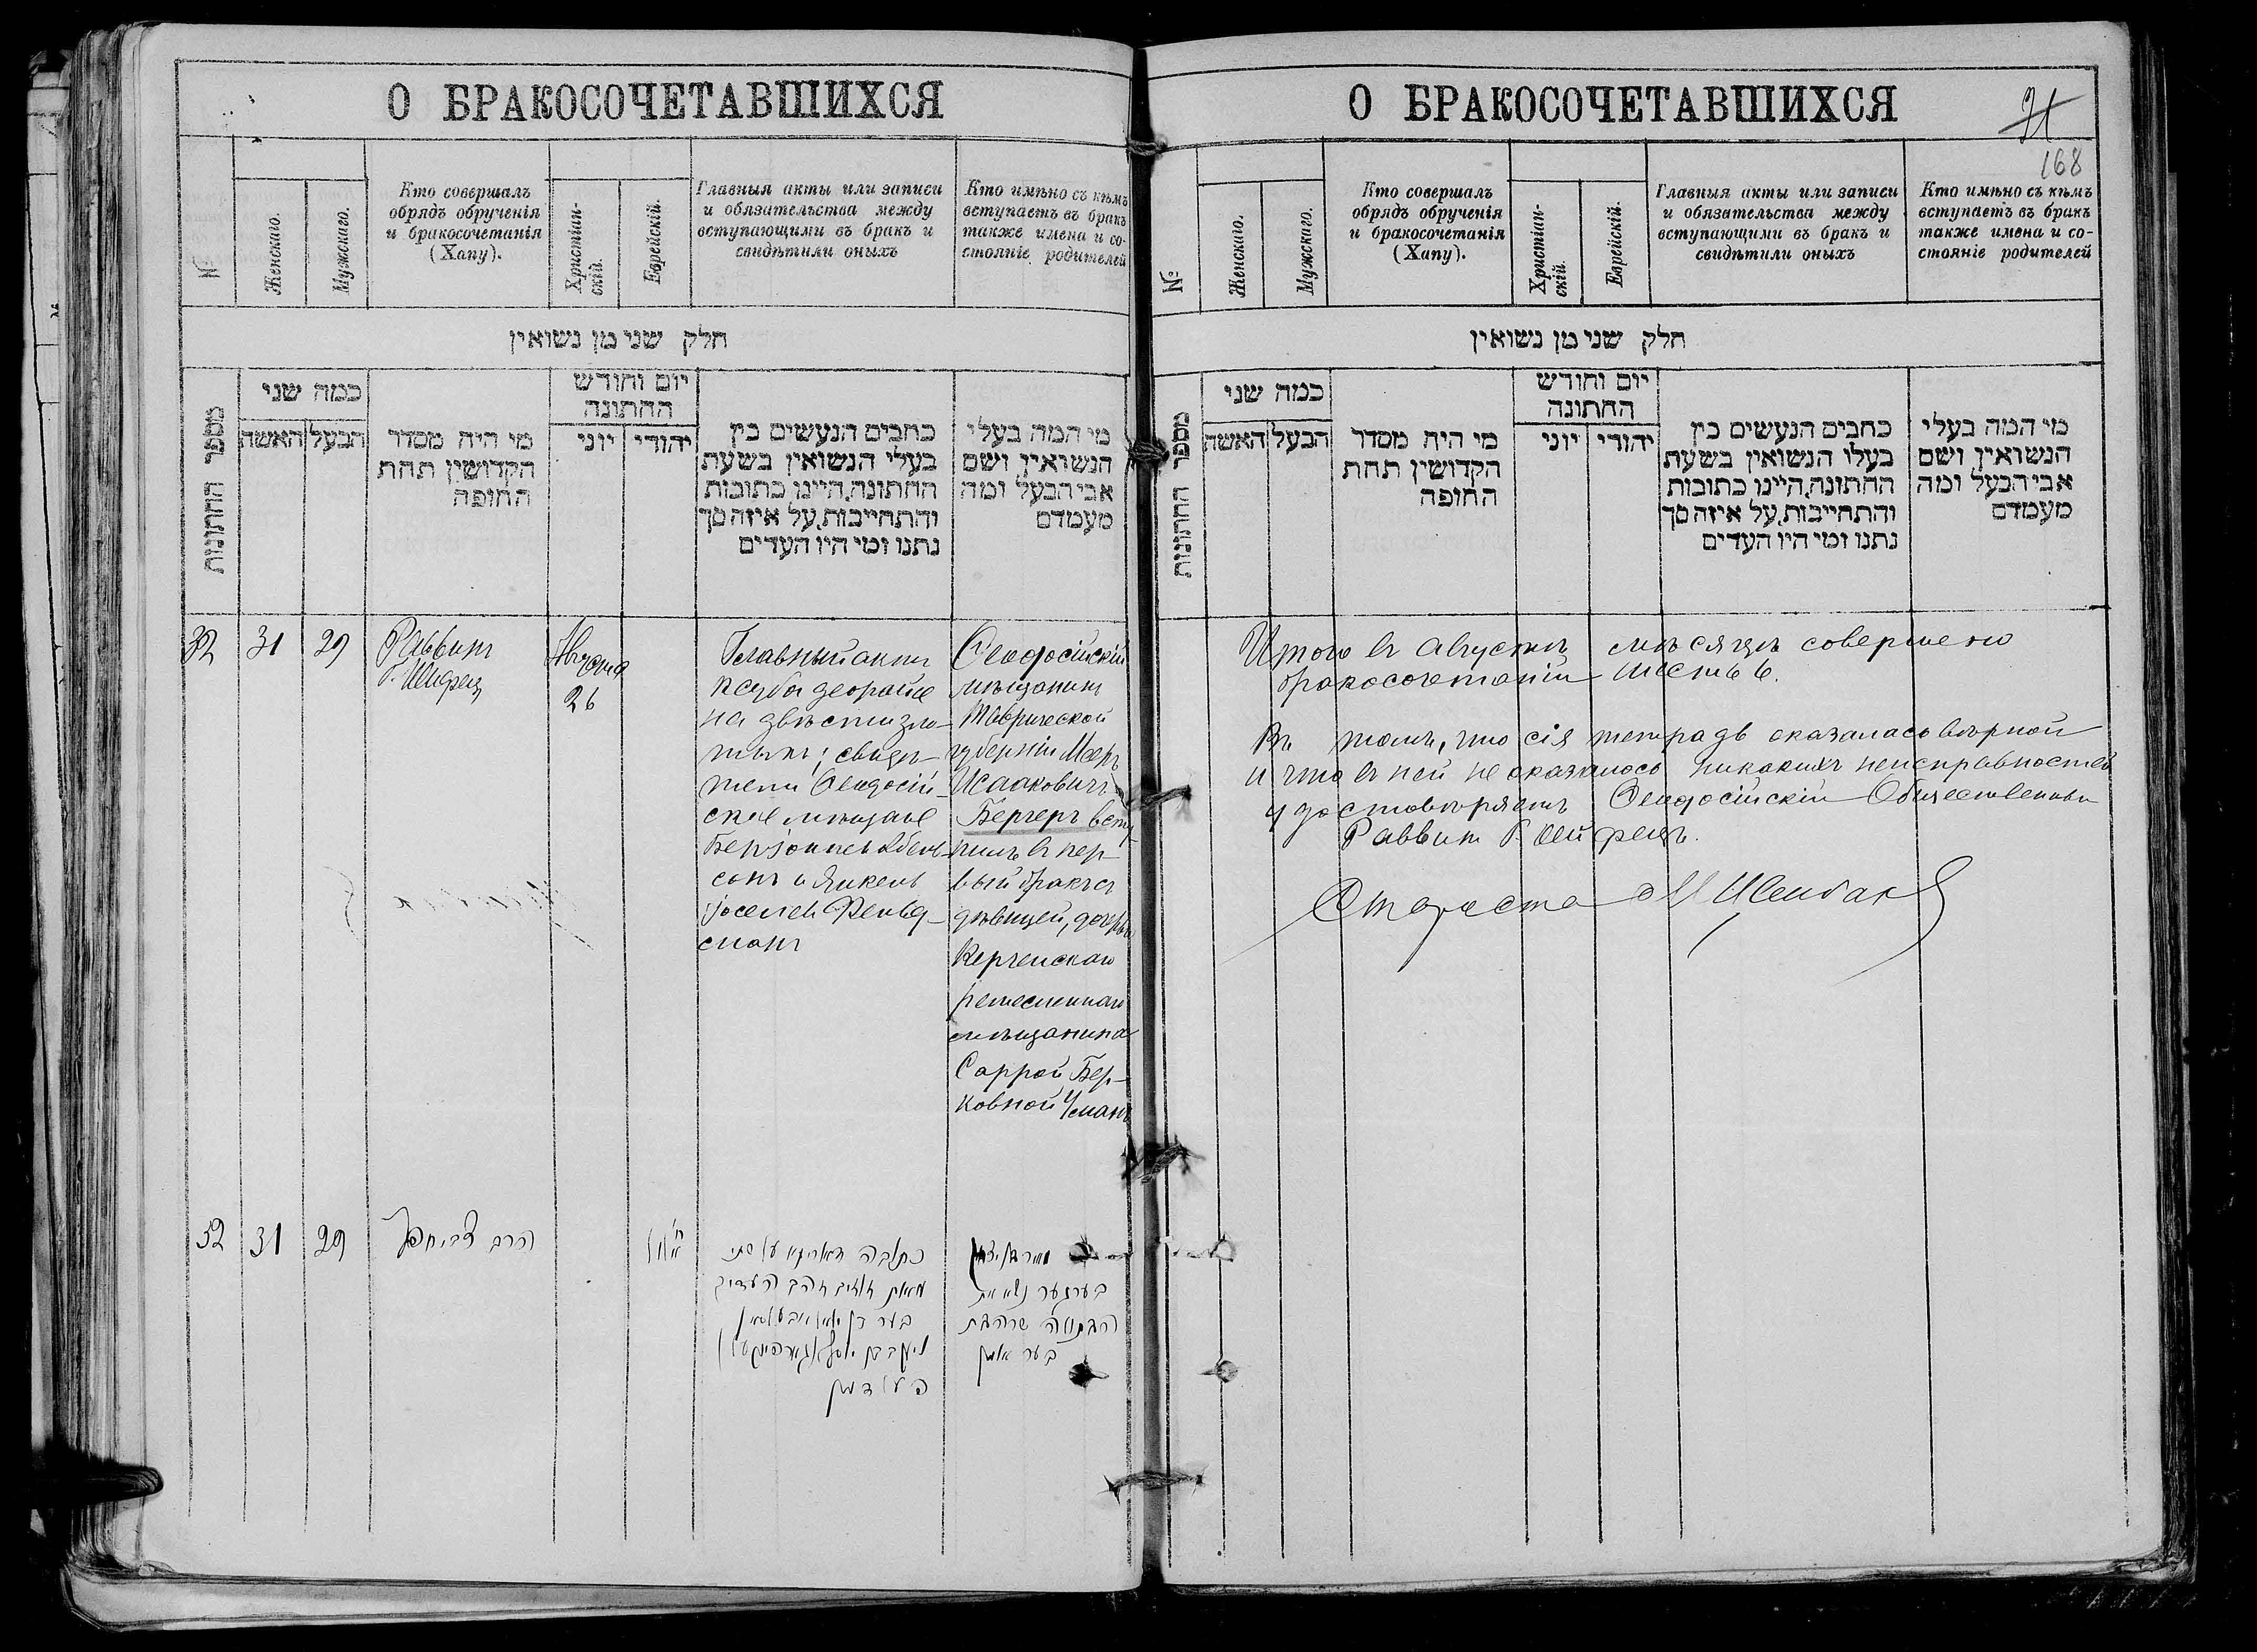 О БРАКОСОЧЕТАВШИХСЯ
№
Женскаго.
Мужскаго.
Кто совершалъ
обрядъ обрученія
и бракосочетанія
(Хапу).
Христіан-
скій.
Еврейскій.
Главныя акты или записи
и обязательства между
вступающими въ бракъ и
свидѣтили оныхъ
Кто имѣно съ кѣмъ
вступаетъ въ бракъ
также имена и со-
стояніе родителей
חלק שני מן נשואין
מספר החתונות
כמה שני
האשה
הבעל
מי היה מסדר
הקדושין תחת
החופה
יום וחודש
החתונה
יוני
יהודי
כתבים הנעשים בין
בעלי הנשואין בשעת
החתונה,היינו כתובות
והתחייבות,על איזה סך
נתנו ומי היו העדים
מי המה בעלי
הנשואין ושם
אבי הבעל ומה
מעמדם
32
31
29
Раввинъ
Августа
26
Главный актъ
на двѣсти зло-
тыхъ; свидѣ-
тели Ѳеодосій-
скіе мѣщане
и Янкель
Фельд-
манъ
Ѳеодосійскій
мѣщанинъ
Таврической
губерніи Мееръ
Исааковичъ
Бергеръ всту-
пилъ въ пер-
вый бракъ съ
дѣвицей, дочерью
Керченскаго
ремесленнаго
мѣщанина
Саррой Бер-
ковной Уманъ
32
31
29
הרב
אלול
כתובה דאוריתא על שתי
מאות זהב העדים
בער בן
יעקב בן
פעלדמאן
בערגער נשא את
הבתולה שרה בת
בער אומן
О БРАКОСОЧЕТАВШИХСЯ
21
168
№
Женскаго.
Мужскаго.
Кто совершалъ
обрядъ обрученія
и бракосочетанія
(Хапу).
Христіан-
скій.
Еврейскій.
Главныя акты или записи
и обязательства между
вступающими въ бракъ и
свидѣтили оныхъ
Кто имѣно съ кѣмъ
вступаетъ въ бракъ
также имена и со-
стояніе родителей
חלק שני מן נשואין
מספר החתונות
כמה שני
האשה
הבעל
מי היה מסדר
הקדושין תחת
החופה
יום וחודש
החתונה
יוני
יהודי
כתבים הנעשים בין
בעלו הנשואין בשעת
החתונה,היינו כתובות
והתחייבות,על איזה סך
נתנו ומי היו העדים
מי המה בעלי
הנשואין ושם
אבי הבעל ומה
מעמדם
Итого въ Августѣ мѣсяцѣ совершено
бракосочетаній шесть 6.
Въ томъ, что сія тетрадь оказалась вѣрной
и что въ ней не оказалось никакихъ неисправностей
удостовѣряетъ Ѳеодосійскій Общественный
Раввинъ
Староста